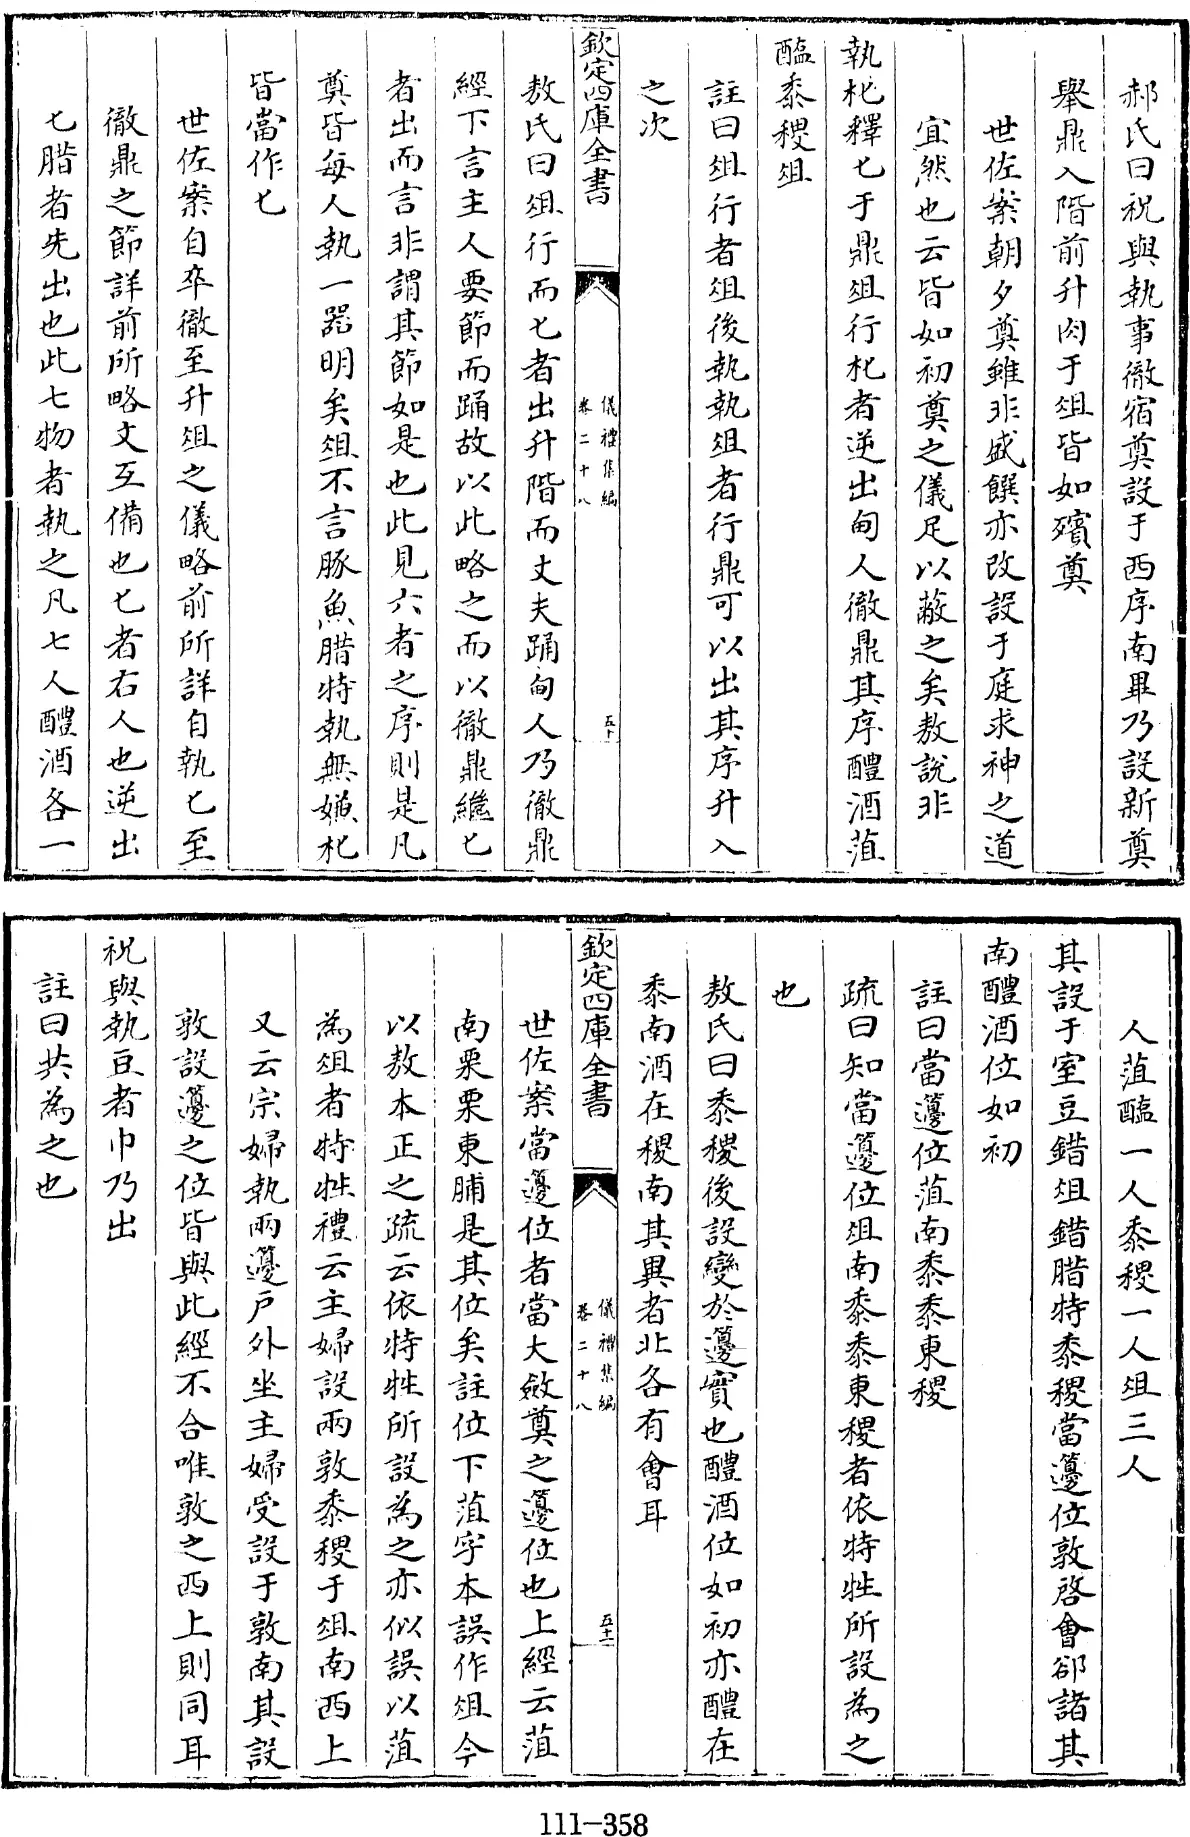 郝氏曰祝與執事徹宿奠設于西序南畢乃設新奠
舉鼎入階前升肉于俎皆如殯奠
世佐案朝夕奠雖非盛饌亦改設于庭求神之道
宜然也云皆如初奠之儀足以蔽之矣敖說非
執朼釋匕于鼎俎行朼者逆出甸人徹鼎其序醴酒菹
醢黍稷俎
註曰俎行者俎後執執俎者行鼎可以出其序升入
之次
欽定四庫全書
儀禮集編
卷二十八
五十
敖氏曰俎行而匕者出升階而丈夫踊甸人乃徹鼎
經下言主人要節而踊故以此略之而以徹鼎繼匕
者出而言非謂其節如是也此見六者之序則是凡
奠皆每人執一器明矣俎不言豚魚腊特執無嫌朼
皆當作匕
世佐案自卒徹至升俎之儀略前所詳自執匕至
徹鼎之節詳前所略文互備也匕者右人也逆出
匕腊者先出也此七物者執之凡七人醴酒各一
人菹醢一人黍稷一人俎三人
其設于室豆錯俎錯腊特黍稷當籩位敦啓會郤諸其
南醴酒位如初
註曰當籩位菹南黍黍東稷
疏曰知當籩位俎南黍黍東稷者依特牲所設為之
也
敖氏曰黍稷後設變於籩實也醴酒位如初亦醴在
黍南酒在稷南其異者北各有會耳
欽定四庫全書
儀禮集編
卷二十八
五十一
世佐案當籩位者當大斂奠之籩位也上經云菹
南栗栗東脯是其位矣註位下菹字本誤作俎今
以敖本正之疏云依特牲所設為之亦似誤以菹
為俎者特牲禮云主婦設兩敦黍稷于俎南西上
又云宗婦執兩籩戶外坐主婦受設于敦南其設
敦設籩之位皆與此經不合唯敦之西上則同耳
祝與執豆者巾乃出
註曰共為之也
111-358